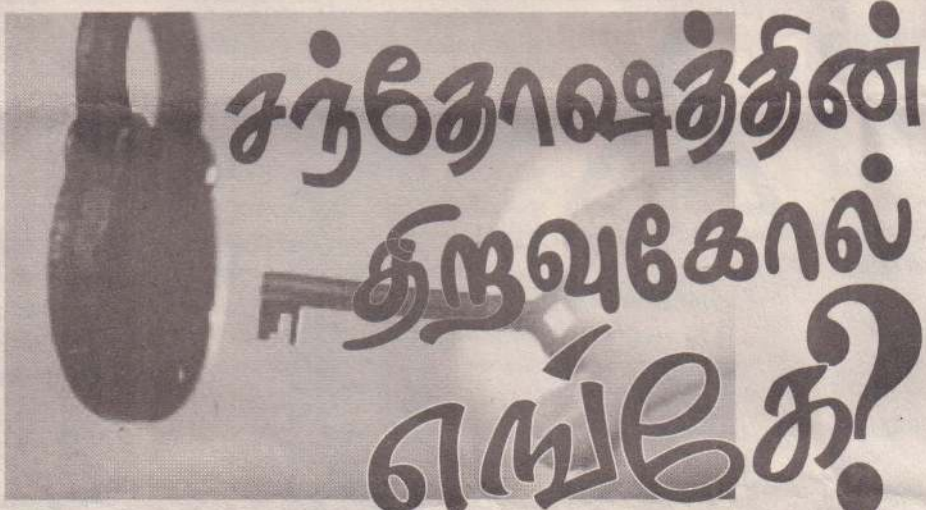 சந்தோஷத்தின்
திறவுகோல்
எங்கே?